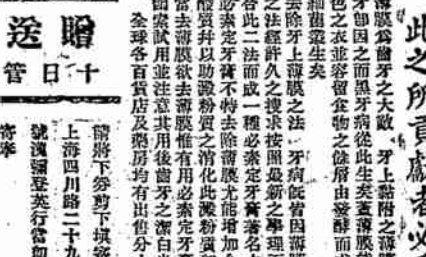 此之所貢獻者必
薄膜爲齒牙之大敵 牙上黏附之薄
牙部因之而黑牙病從此生矣蓋薄膜
色之衣並容留食物之餘屑由發酵而
細菌叢生矣
去除牙上薄膜之法 牙病旣皆因薄
之法經許久之搜求按照最新之學理
合此二法而成一種必素定牙膏著名
必素定牙膏不特去除薄膜尤能增加
酸質幷以助澱粉質之消化此澱粉質
當去薄膜欲去薄膜惟有用必素定牙
國索試用並注意其用後齒牙之潔白
全球各百貨店及藥房均有出售分
贈送
十日管
請將下券剪下填
上海四川路二十九
號漢彌登英行當卽
寄奉